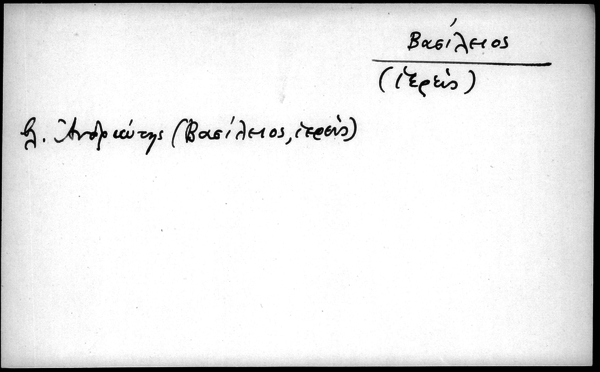 Βασίλειος
(ἱερεύς)
βλ. Ἀνδριώτης (Βασίλειος, ἱερεύς)